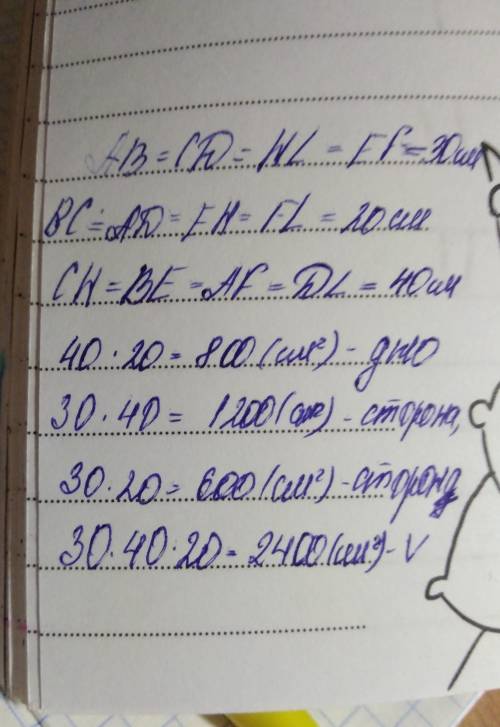 AB = CD = HL = EF = 30 см
BC = AD = EH = FL = 20 см
CH = BE = AF = DL = 40 см
40 · 20 = 800 (см²) - дно
30 · 40 = 1200 (см²) - сторона,
30 · 20 = 600 (см²) - сторона
30 · 40 · 20 = 2400 (см³) - V